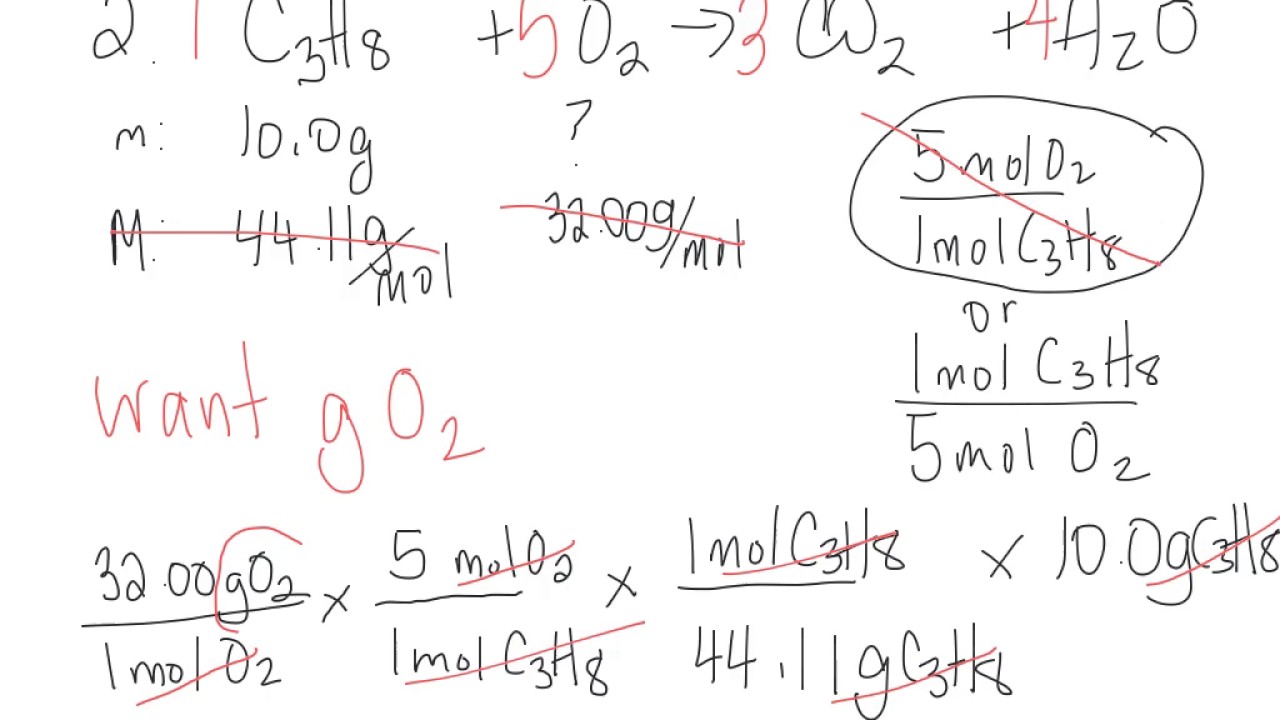 2. 1 C3H8 +5O2 → 3 CO2 +4H2O
m: 10.0g ?
M: 44.11g/mol 32.00g/mol
5 mol O2
1 mol C3H8
or
1 mol C3H8
5 mol O2
want g O2
32.00gO2 x 5 mol O2 x 1 mol C3H8 x 10.0gC3H8
1 mol O2 1 mol C3H8 44.11gC3H8